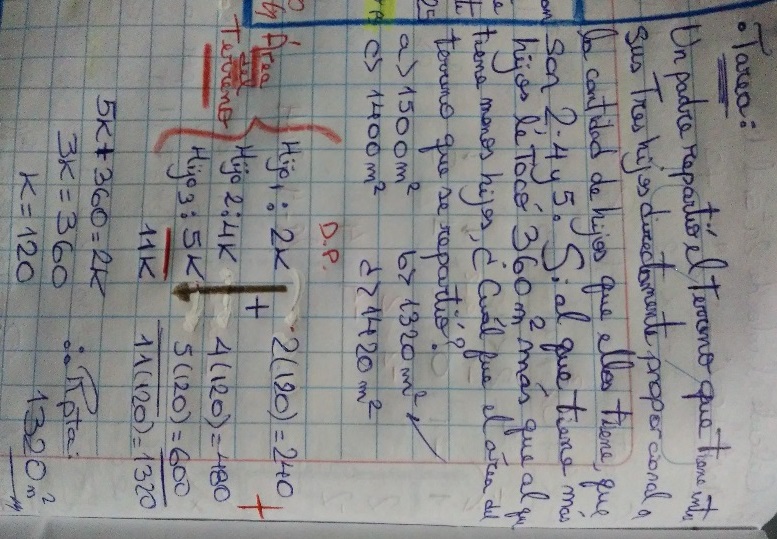 Tarea:
Un padre repartió el terreno que tiene entre
sus Tres hijos directamente proporcional a
la cantidad de hijos que ellos tiene, que
son 2, 4 y 5. Si al que tiene más
hijos le Tocó 360 m² más que al que
tiene menos hijos, ¿Cuál fue el área del
terreno que se repartió?
a) 1500 m² b) 1320 m² ✓
c) 1400 m² d) 1420 m²
D.P.
Área
del
Terreno
Hijo 1: 2K 2(120) = 240
Hijo 2: 4K + 4(120) = 480 +
Hijo 3: 5K 5(120) = 600
11K 11(120) = 1320
5K + 360 = 2K
3K = 360 ∴ Rpta:
K = 120 1320 m²